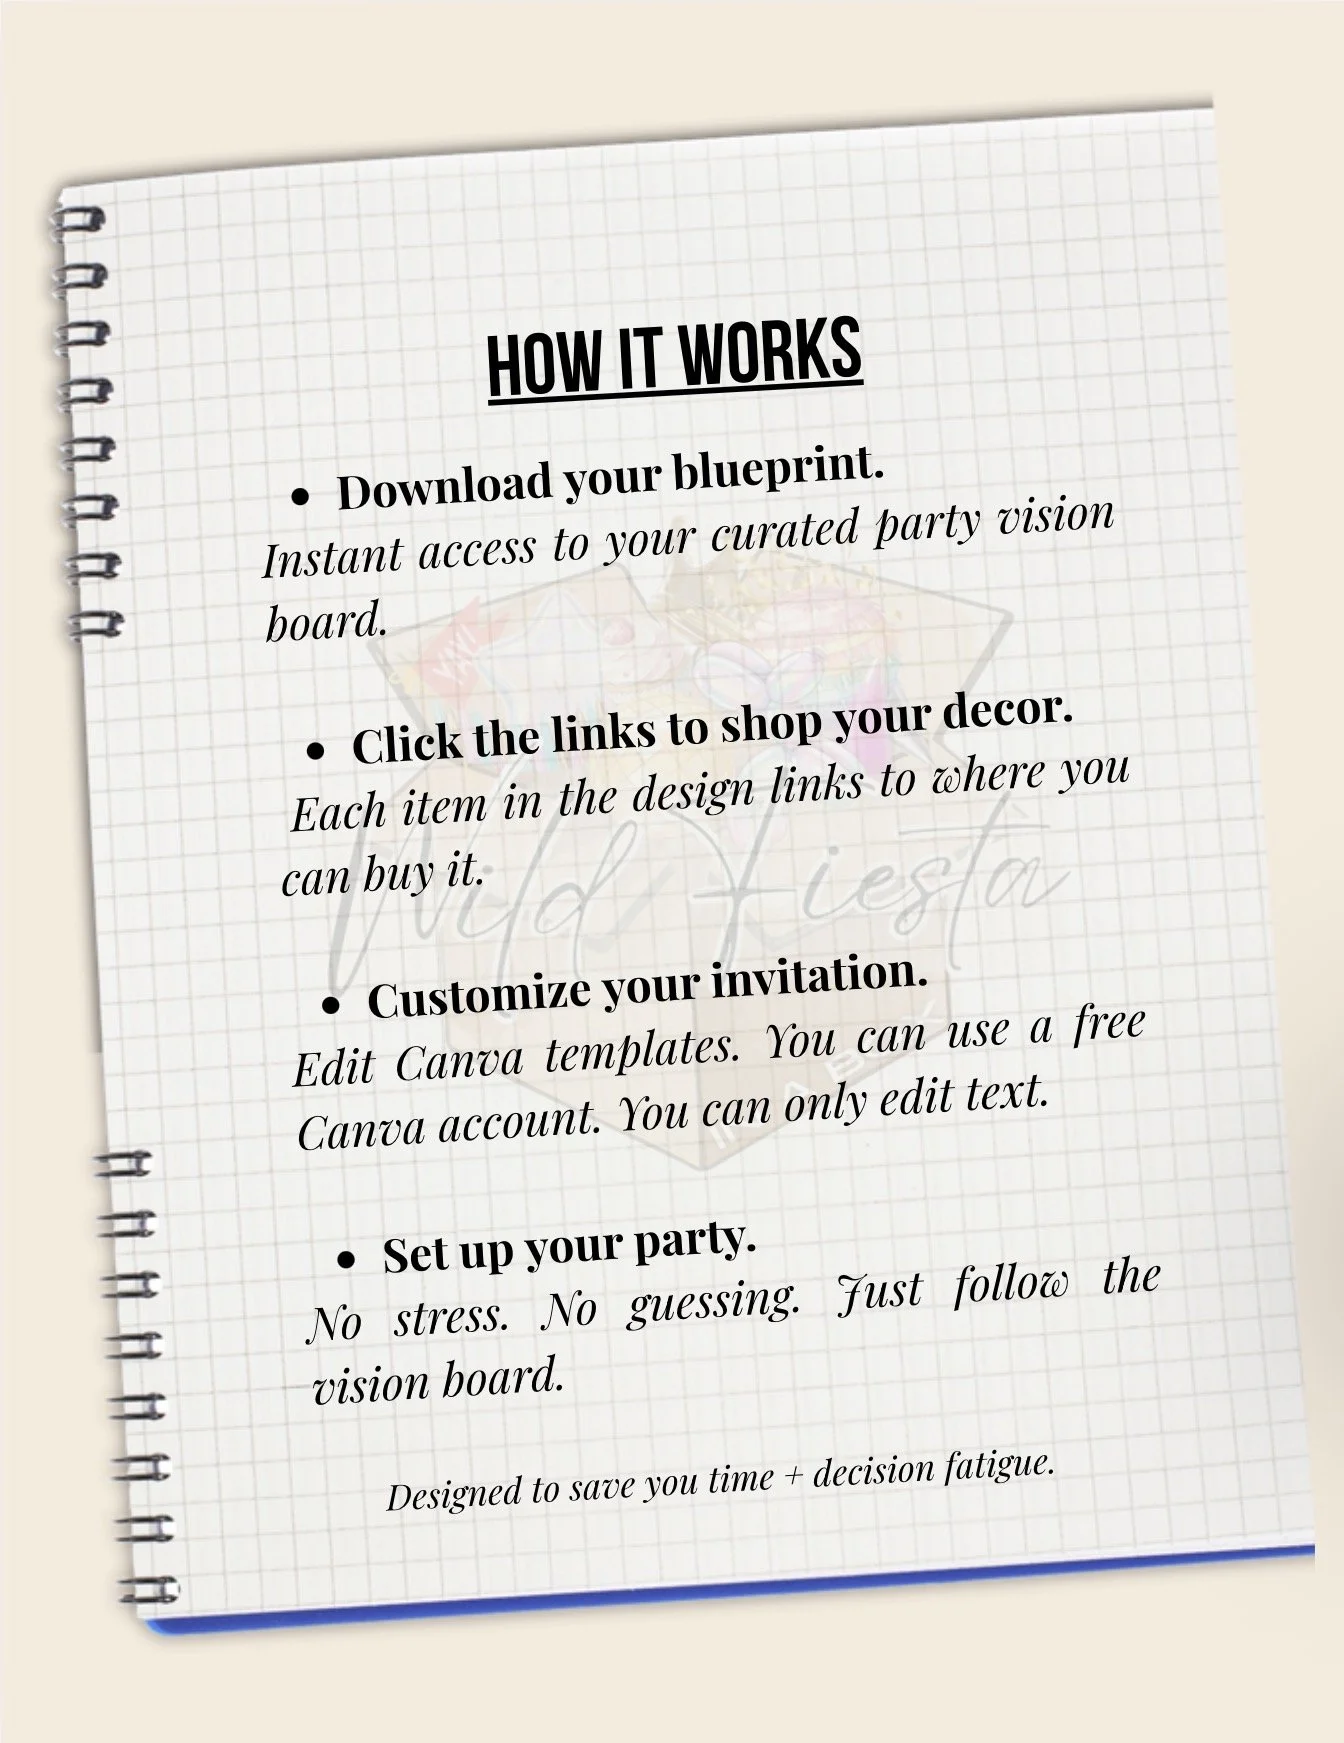 HOW IT WORKS
• Download your blueprint.
Instant access to your curated party vision
board.
• Click the links to shop your decor.
Each item in the design links to where you
can buy it.
• Customize your invitation.
Edit Canva templates. You can use a free
Canva account. You can only edit text.
• Set up your party.
No stress. No guessing. Just follow the
vision board.
Designed to save you time + decision fatigue.
Wild Fiesta